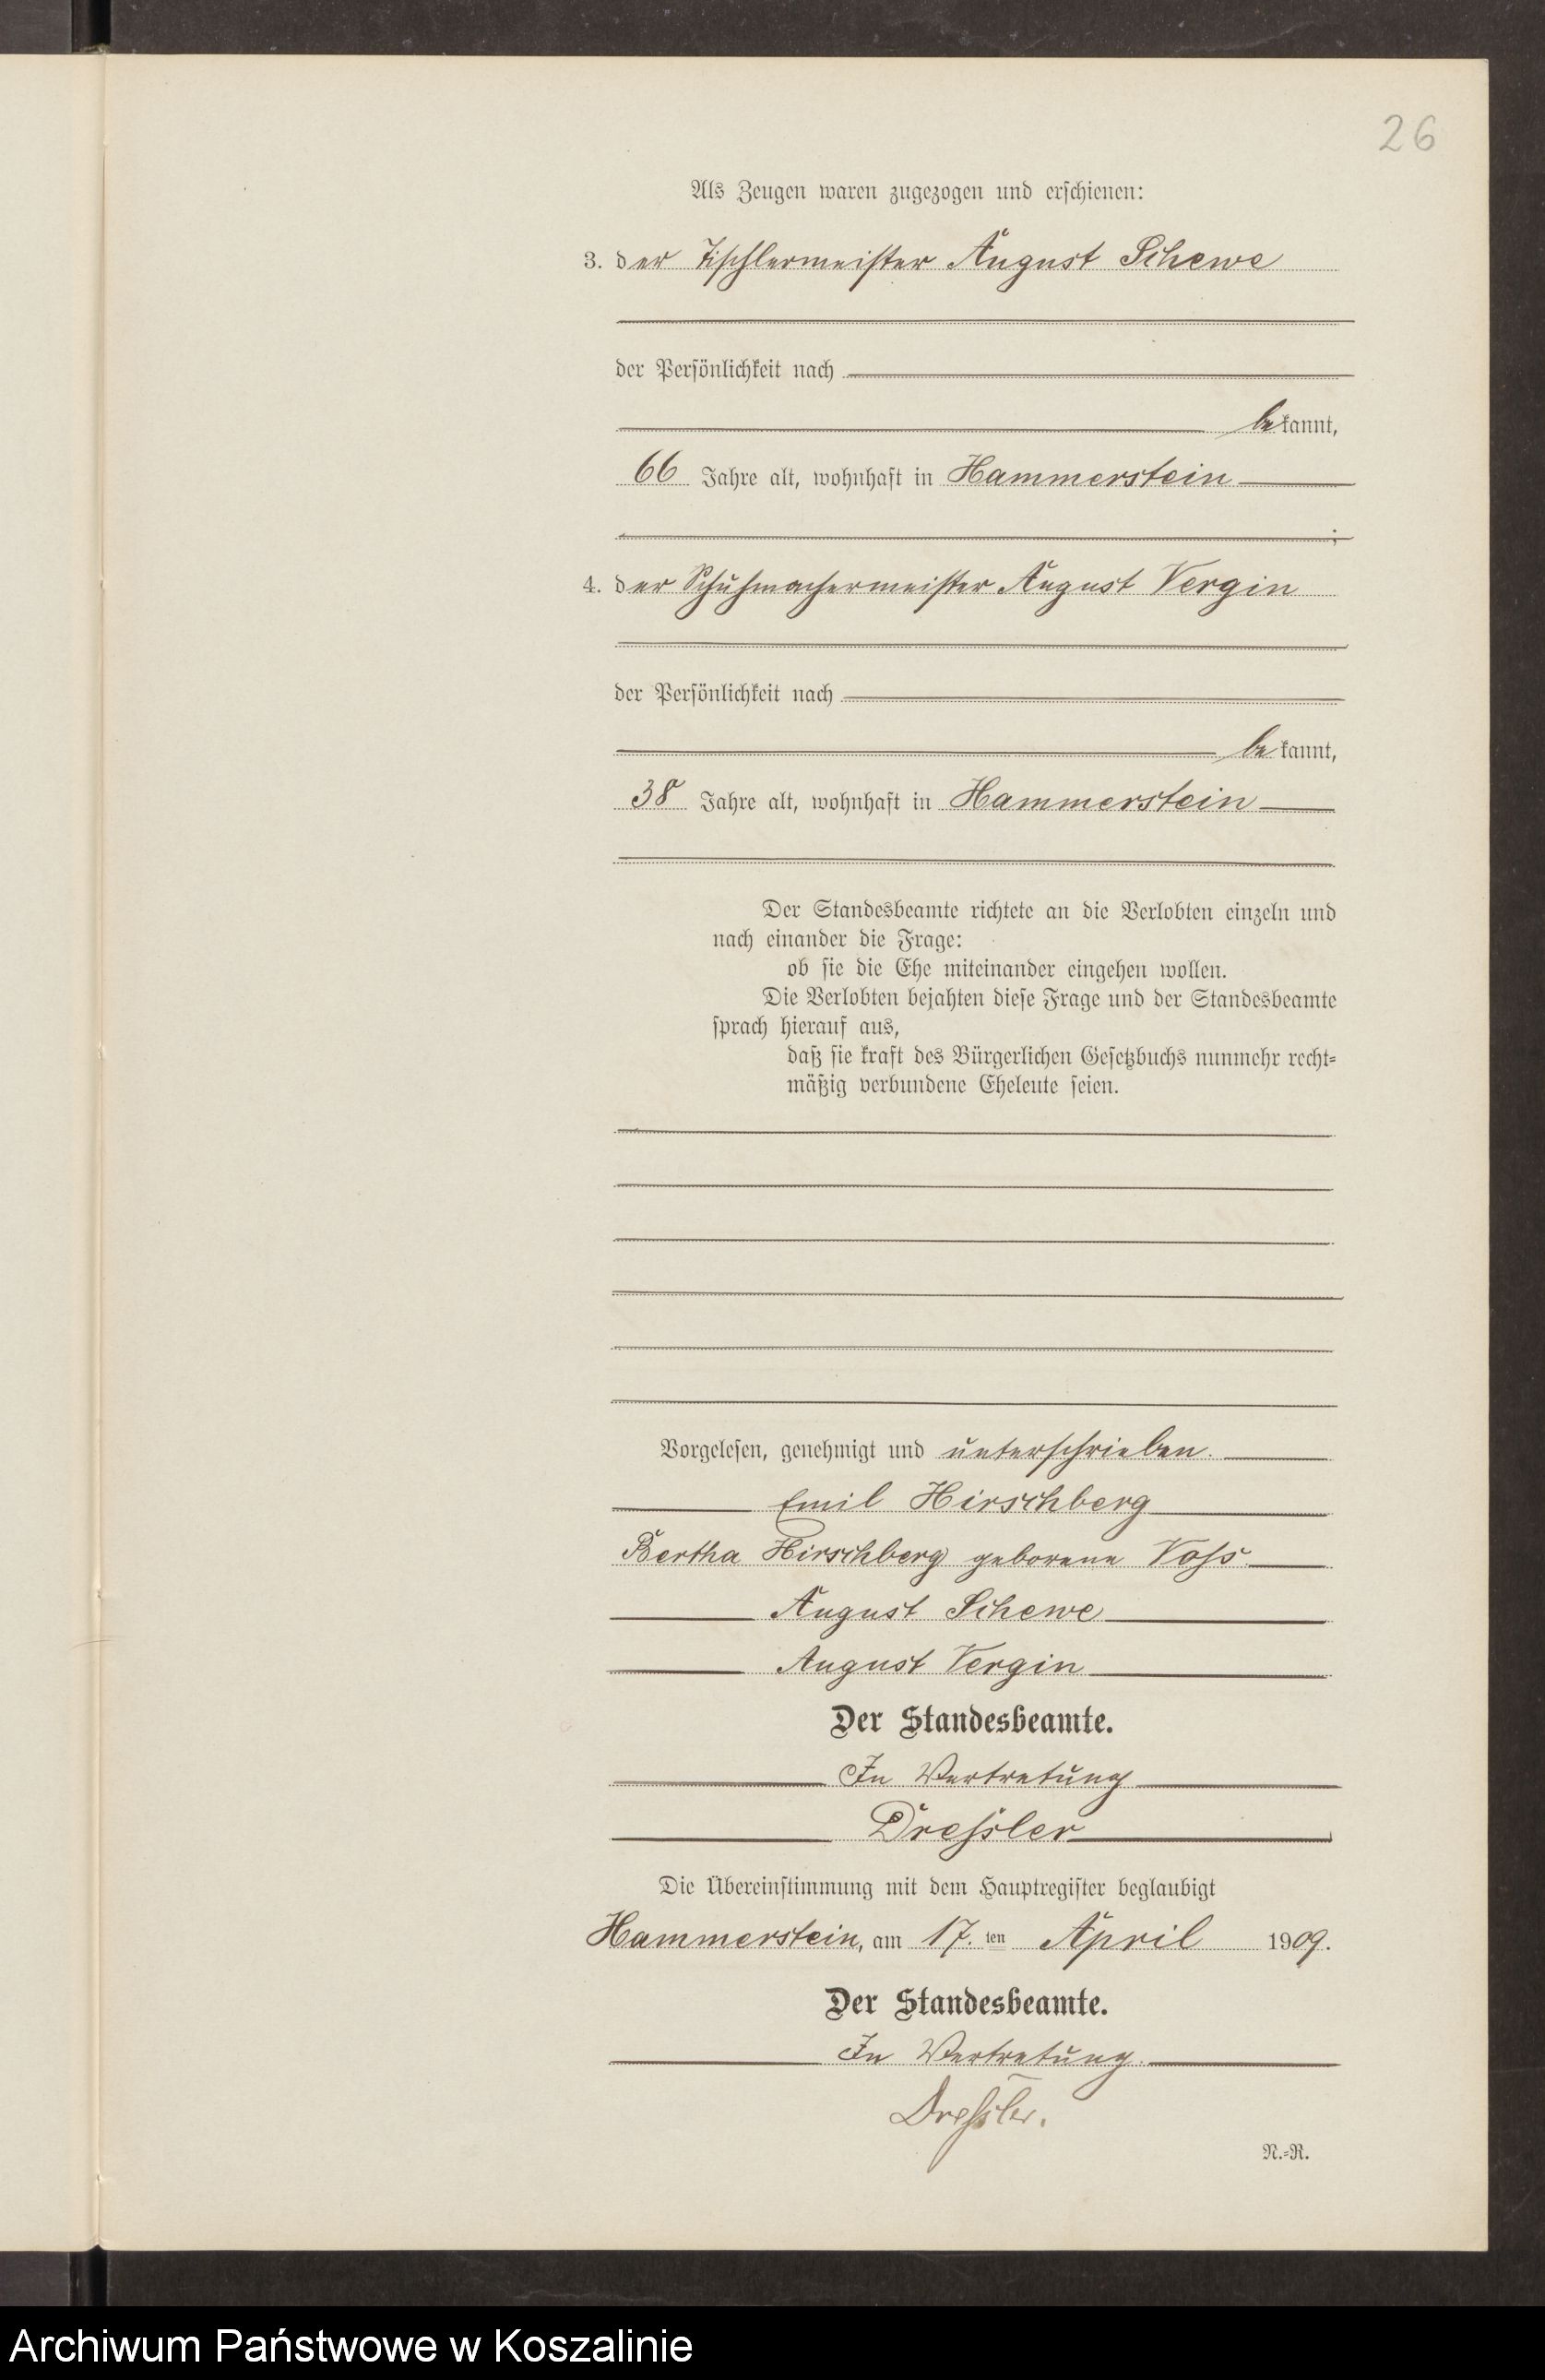 26
Als Zeugen waren zugezogen und erschienen:
3. der Tischlermeister August Schewe
der Persönlichkeit nach
bekannt,
66 Jahre alt, wohnhaft in Hammerstein
;
4. der Schuhmachermeister August Vergin
der Persönlichkeit nach
bekannt,
38 Jahre alt, wohnhaft in Hammerstein
Der Standesbeamte richtete an die Verlobten einzeln und
nach einander die Frage:
ob sie die Ehe miteinander eingehen wollen.
Die Verlobten bejahten diese Frage und der Standesbeamte
sprach hierauf aus,
daß sie kraft des Bürgerlichen Gesetzbuchs nunmehr recht-
mäßig verbundene Eheleute seien.
Vorgelesen, genehmigt und unterschrieben.
Emil Hirschberg
Bertha Hirschberg geborene Voss
August Schewe
August Vergin
Der Standesbeamte.
In Vertretung
Dressler
Die Übereinstimmung mit dem Hauptregister beglaubigt
Hammerstein, am 17. ten April 1909.
Der Standesbeamte.
In Vertretung.
Dressler.
N.-R.
Archiwum Państwowe w Koszalinie